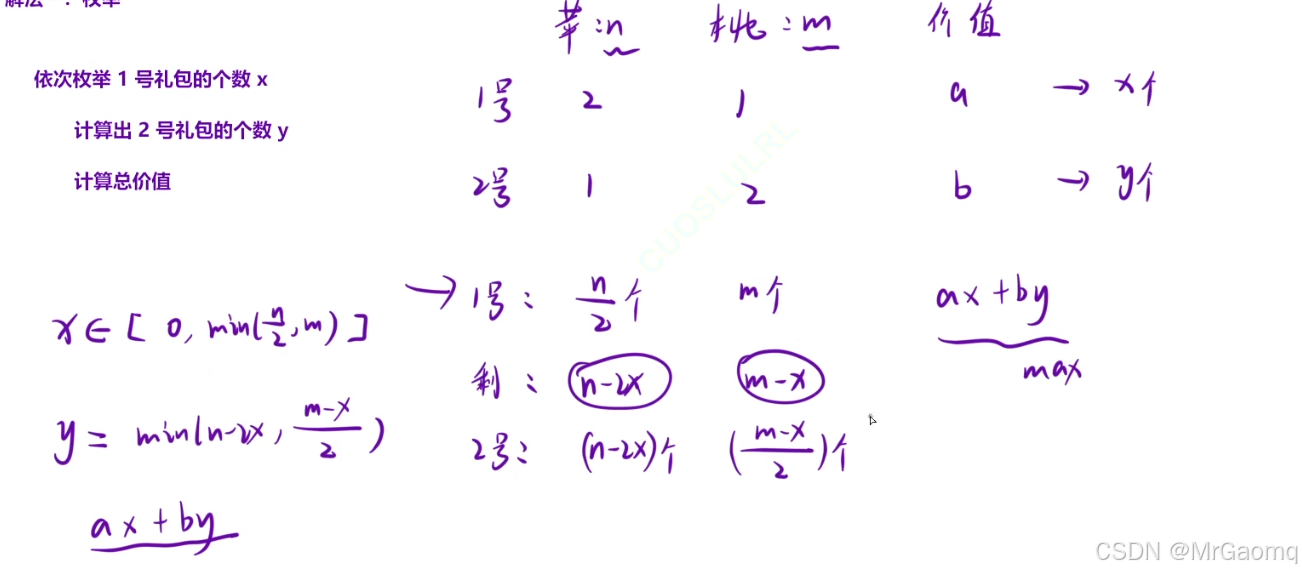 解法一：枚举
依次枚举 1 号礼包的个数 x
计算出 2 号礼包的个数 y
计算总价值
苹：n 桃：m 价值
1号 2 1 a → x个
2号 1 2 b → y个
→ 1号： n/2 个 m个 ax+by
max
x∈[0, min(n/2, m)]
剩： n-2x m-x
y = min(n-2x, (m-x)/2)
2号： (n-2x)个 ((m-x)/2)个
ax+by
CUOSLUILRL
CSDN @MrGaomq